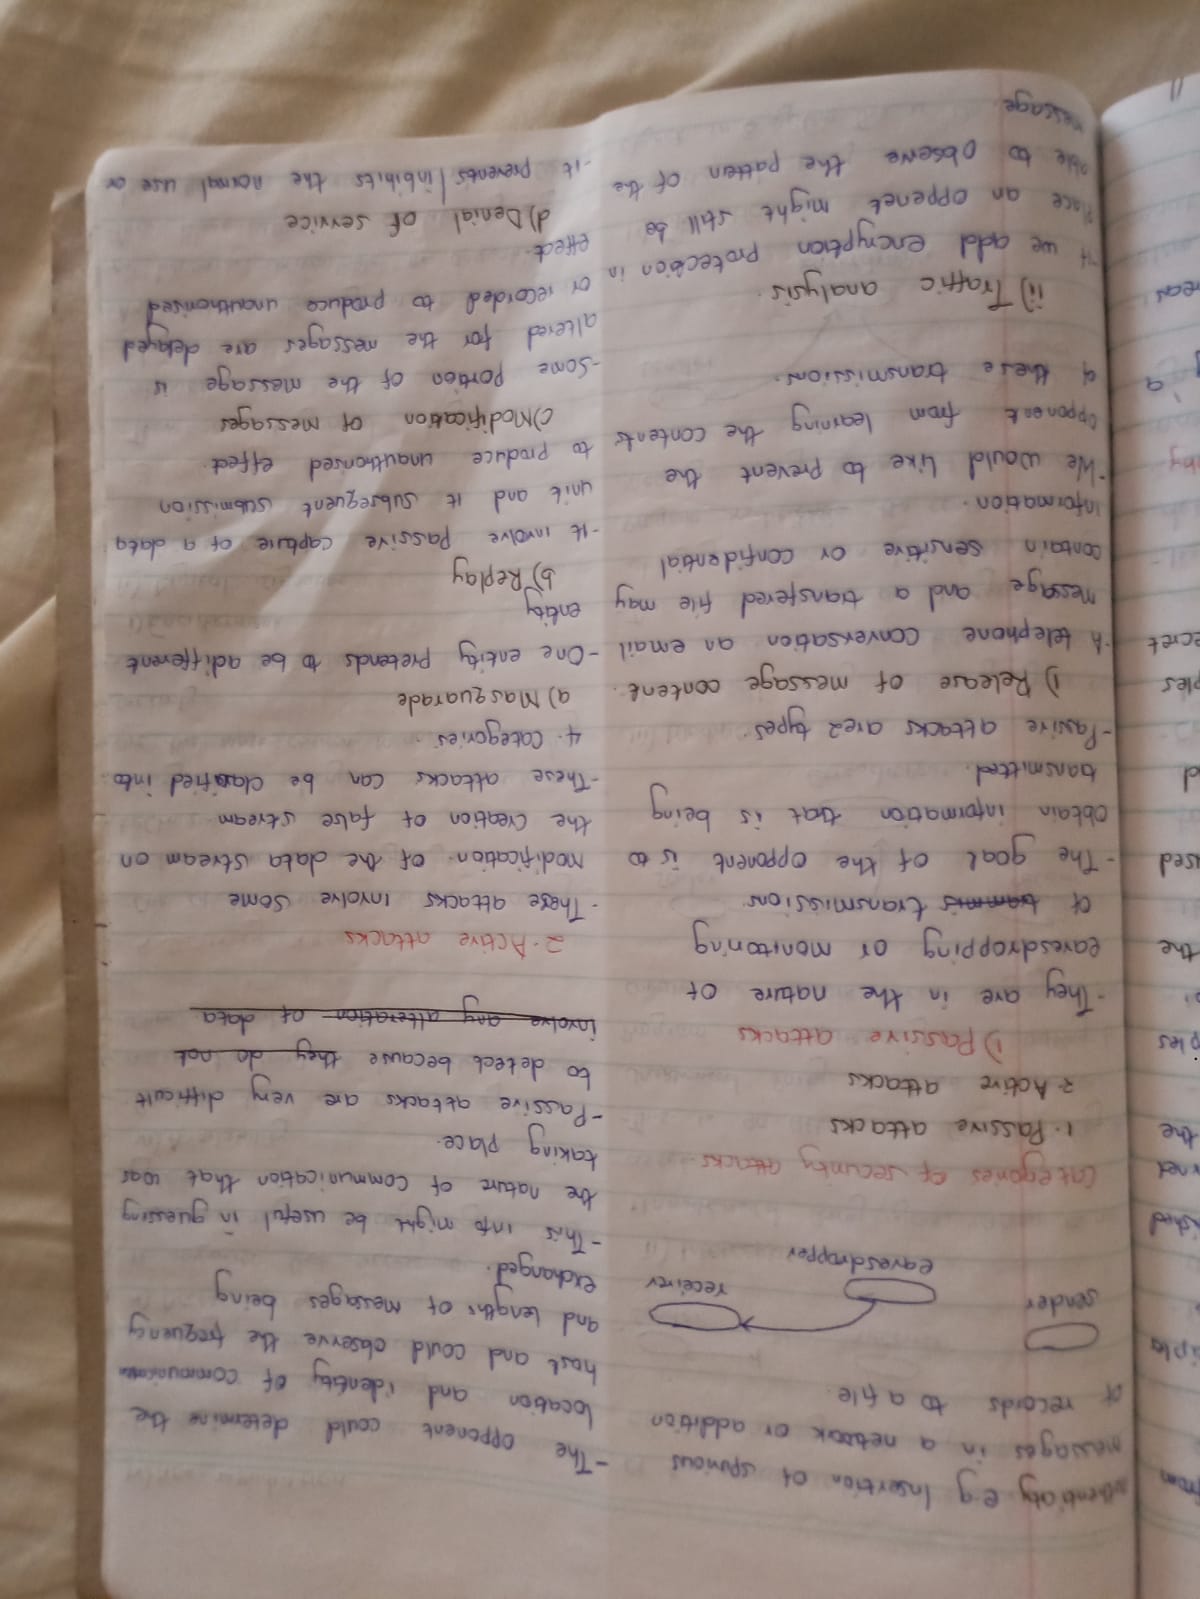 authenticity e.g Insertion of spurious
messages in a network or addition
of records to a file.
sender
receiver
eavesdropper
Categories of security attacks
1. Passive attacks
2. Active attacks
1) Passive attacks
- They are in the nature of
eavesdropping or monitoring
of transmissions
- The goal of the opponent is to
obtain information that is being
transmitted.
- Passive attacks are 2 types.
1) Release of message content.
- A telephone conversation an email
message and a transfered file may
contain sensitive or confidential
information.
- We would like to prevent the
opponent from learning the contents
of these transmissions.
ii) Traffic analysis.
If we add encryption protection in
place an opponet might still be
able to observe the pattern of the
message
- The opponent could determine the
location and identity of
host and could observe the frequency
and lengths of messages being
exchanged.
- This info might be useful in guessing
the nature of communication that was
taking place.
- Passive attacks are very difficult
to detect because they do not
involve any alteration of data
2. Active attacks
- These attacks involve some
modification of the data stream or
the creation of false stream
- These attacks can be classified into
4 categories.
a) Masquarade
- One entity pretends to be a different
entity
b) Replay
- It involve passive capture of a data
unit and it subsequent submission
to produce unauthorised effect.
c) Modification of messages
- Some portion of the message is
altered for the messages are delayed
or recorded to produce unauthorised
effect.
d) Denial of service
- it prevents/inhibits the normal use or